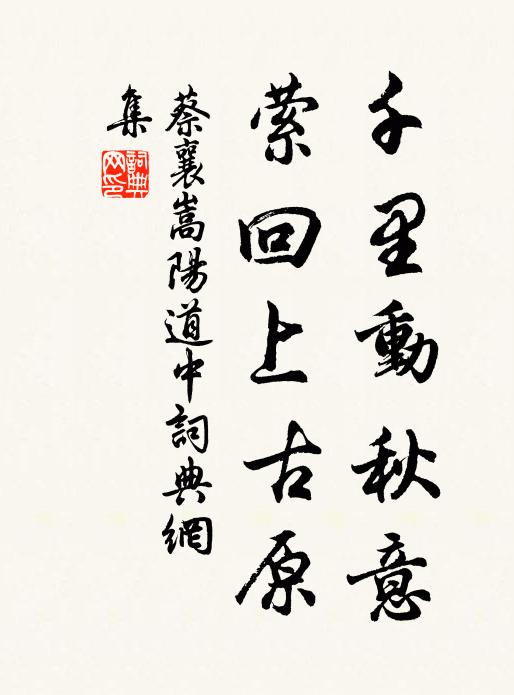 千里動秋意
萦回上古原
蔡襄嵩陽道中詞典網
集
詞典
网印